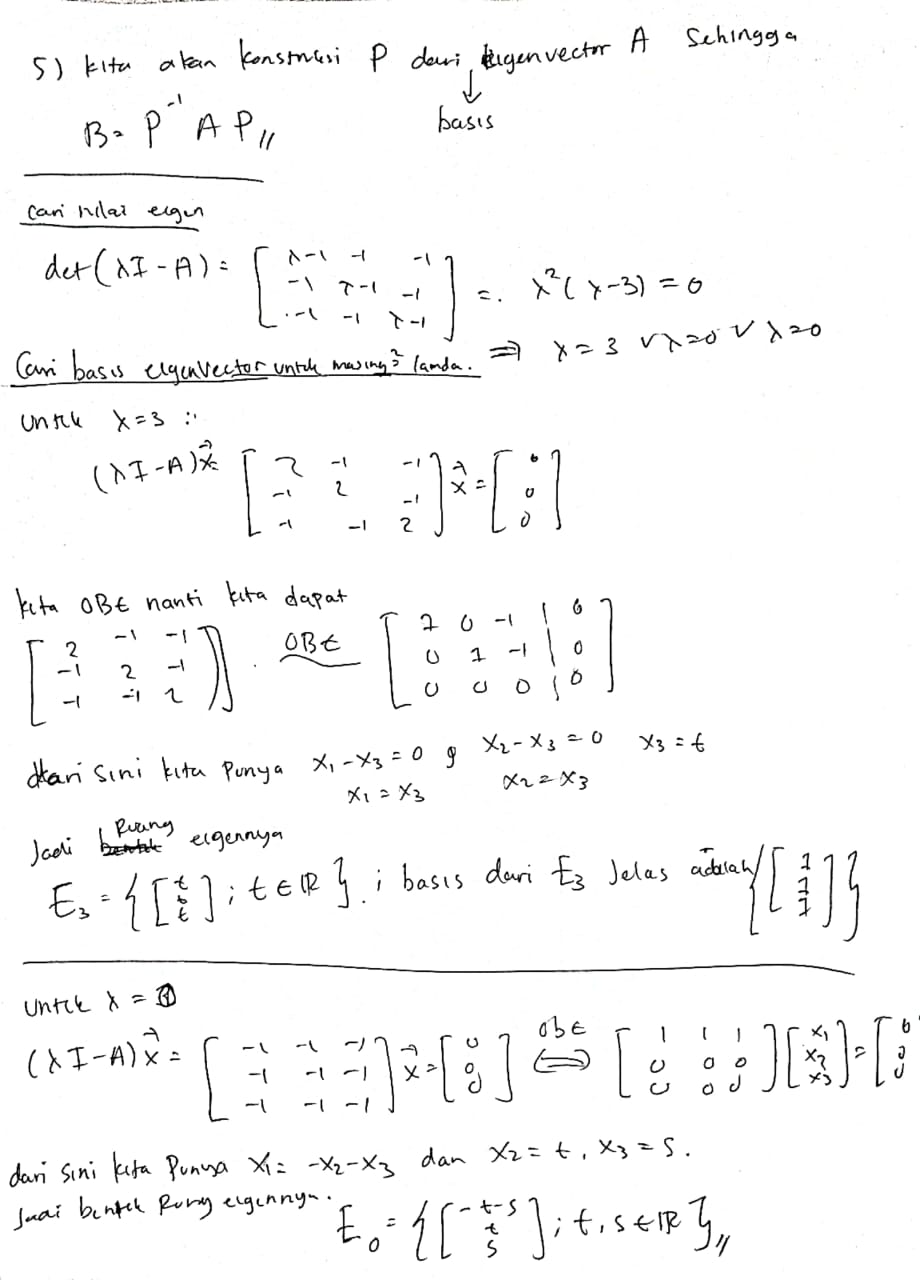 5) kita akan konstruksi P dari eigenvector A sehingga
↓
basis
B = P⁻¹ A P //
Cari nilai eigen
det(λI - A) = [ λ-1 -1 -1
-1 λ-1 -1
-1 -1 λ-1 ] = λ²(λ-3) = 0
⇒ λ = 3 ∨ λ=0 ∨ λ=0
Cari basis eigenvector untuk masing² lamda.
Untuk λ=3 :
(λI-A)x⃗ = [ 2 -1 -1
-1 2 -1
-1 -1 2 ] x⃗ = [ 0
0
0 ]
kita OBE nanti kita dapat
[ 2 -1 -1
-1 2 -1
-1 -1 2 ] OBE [ 1 0 -1 | 0
0 1 -1 | 0
0 0 0 | 0 ]
dari sini kita punya x₁-x₃ = 0 & x₂-x₃ = 0 x₃ = t
x₁ = x₃ x₂ = x₃
Jadi Ruang eigennya
E₃ = { [ t t t ] ; t ∈ ℝ } ; basis dari E₃ Jelas adalah { [ 1 1 1 ] }
Untuk λ = 0
(λI-A)x⃗ = [ -1 -1 -1
-1 -1 -1
-1 -1 -1 ] x⃗ = [ 0
0
0 ] OBE ⟺ [ 1 1 1
0 0 0
0 0 0 ] [ x₁
x₂
x₃ ] = [ 0
0
0
dari sini kita punya x₁ = -x₂-x₃ dan x₂ = t, x₃ = s.
Jadi bentuk Ruang eigennya.
E₀ = { [ -t-s
t
s ] ; t,s ∈ ℝ } //